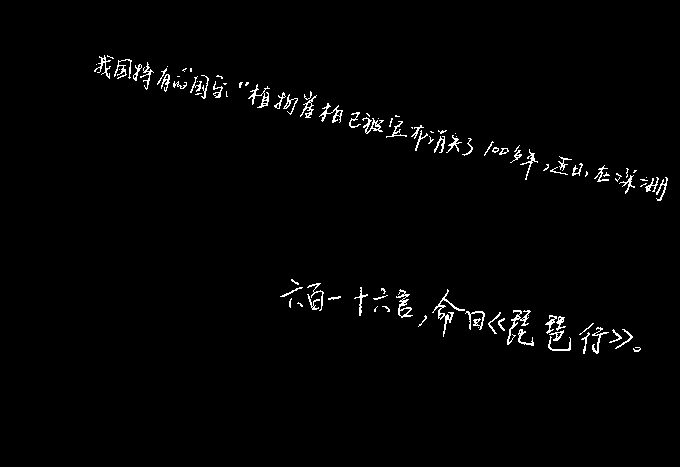 我国特有的“国宝”植物崖柏已被宣布消失了100多年,近日,在深圳
六百一十六言,命曰《琵琶行》。